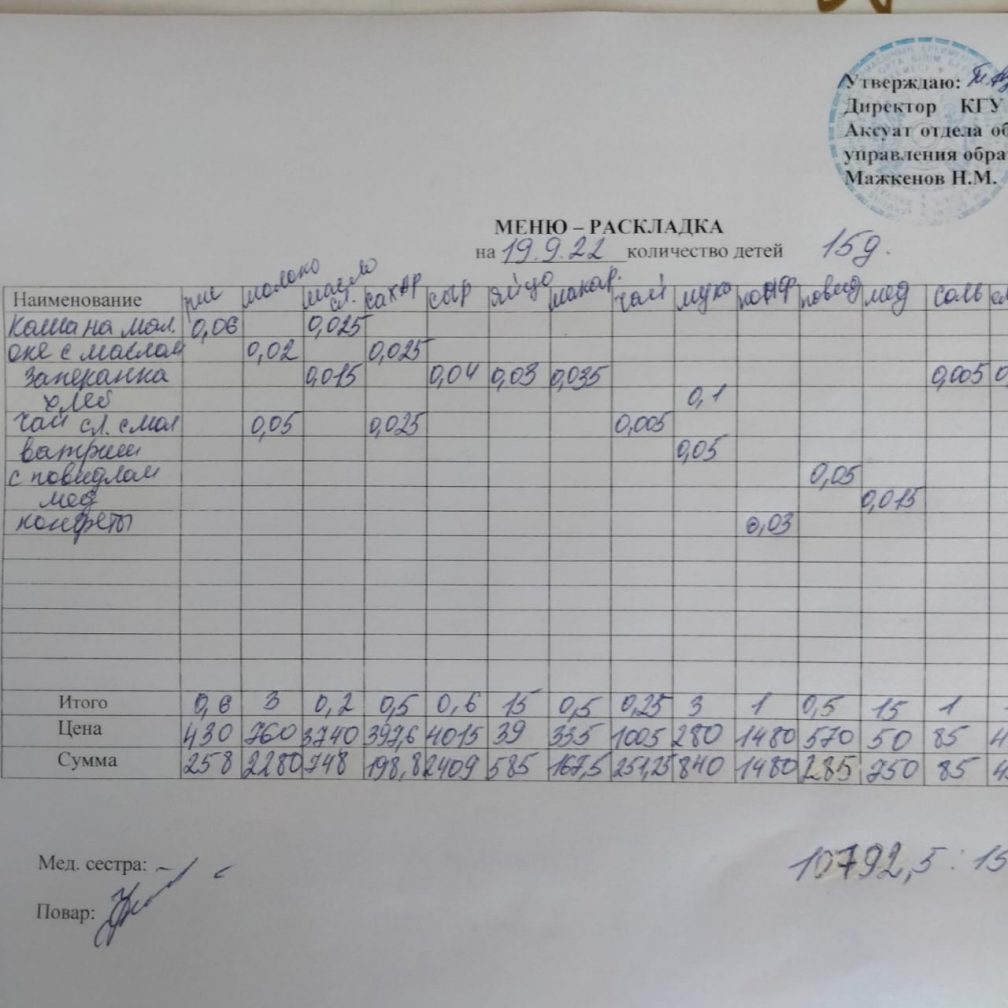 Утверждаю:
Директор КГУ
Аксуат отдела об
управления обра
Мажкенов Н.М.
МЕНЮ – РАСКЛАДКА
на 19.9.22 количество детей 15д.
Наименование рис молоко масло сл. сахар сыр яйцо макар. чай мука конф повид мед соль
Каша на мол. 0,06 0,025
оке с маслом 0,02 0,025
Запеканка 0,015 0,04 0,03 0,035 0,005
хлеб 0,1
чай сл. с мол 0,05 0,025 0,005
ватруш 0,05
с повидлом 0,05
мед 0,015
конфеты 0,03
Итого 0,6 3 0,2 0,5 0,6 15 0,5 0,25 3 1 0,5 15 1
Цена 430 760 3740 397,6 4015 39 335 1005 280 1480 570 50 85 4
Сумма 258 2280 748 198,8 2409 585 167,5 251,25 840 1480 285 750 85 4
Мед. сестра:
10792,5 : 15
Повар: